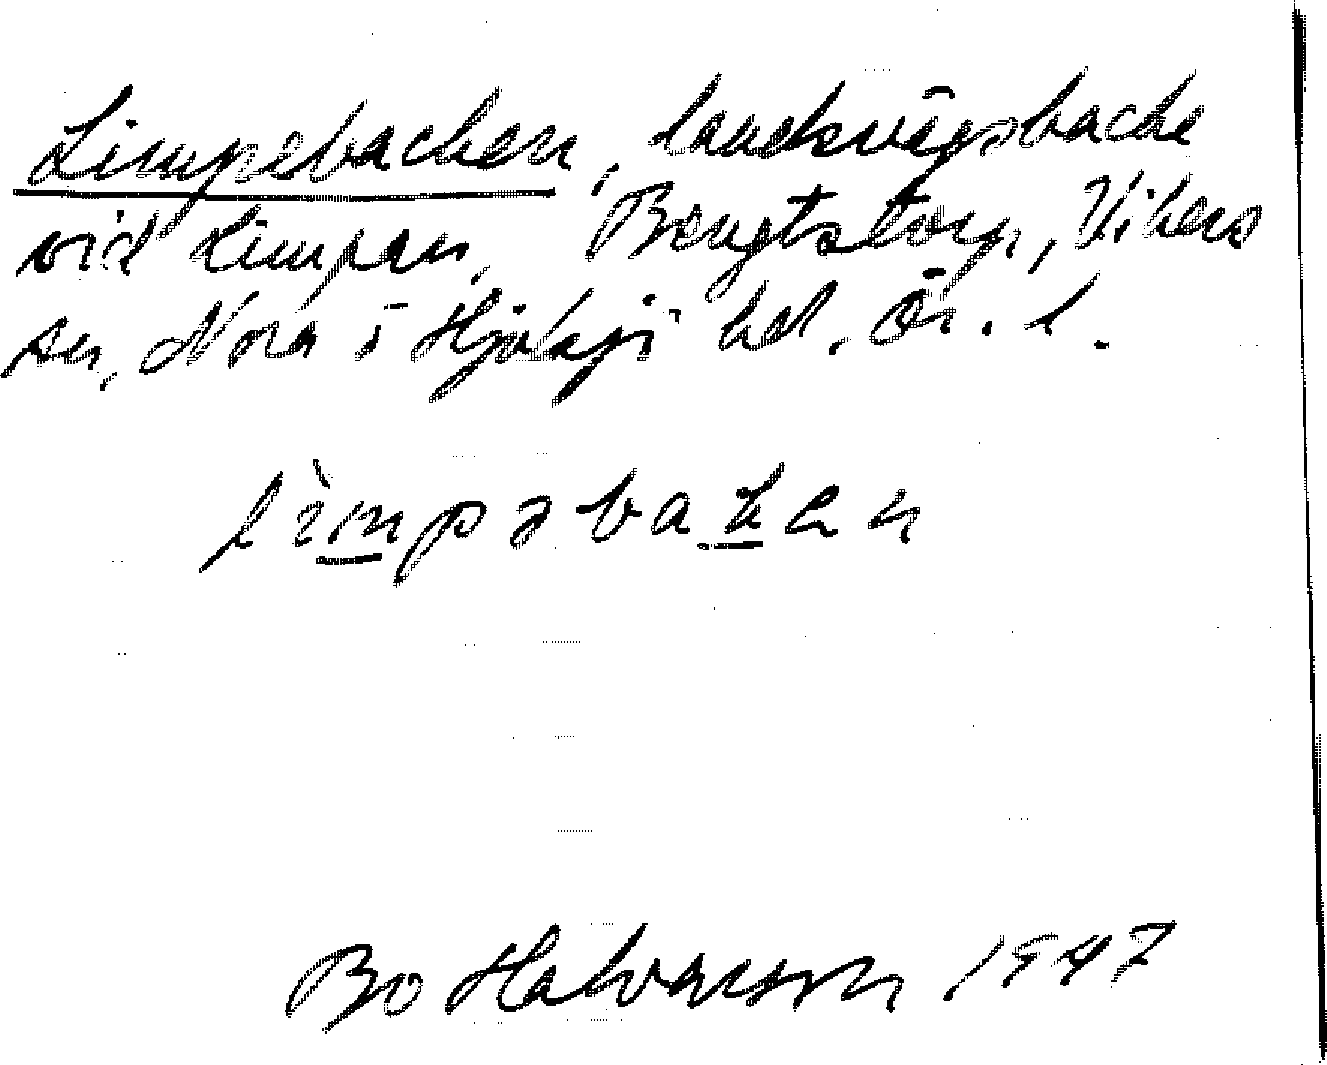 Limpebacken, landsvägsbacke
vid Limpan, Bengtstorp, Vikers
sn, Nora o Hjulsjö hd. Ör. l.
limpəbaken
Bo Halvarson 1947